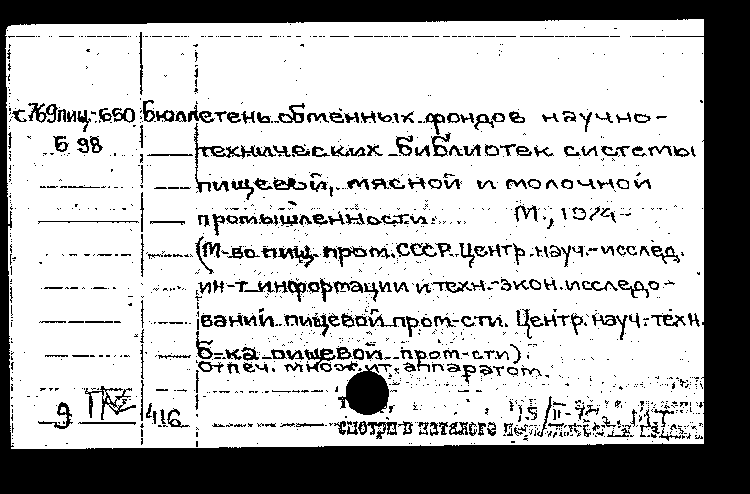 с769пищ-Б50 Бюллетень обменных фондов научно-
Б 98 технических библиотек системы
пищевой, мясной и молочной
промышленности. М., 1974-
(М-во пищ. пром. СССР. Центр. науч.-исслед.
ин-т информации и техн.-экон. исследо-
ваний пищевой пром-сти. Центр. науч.-техн.
б-ка пищевой пром-сти).
Отпеч. множит. аппаратом.
9 416
смотри в каталоге